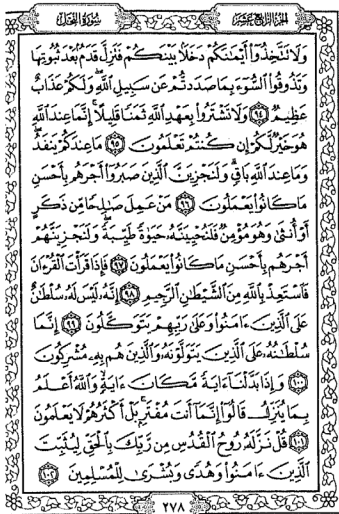 الجزء الرابع عشر
سورة النحل
وَلَا تَتَّخِذُوٓا۟ أَيْمَٰنَكُمْ دَخَلًۢا بَيْنَكُمْ فَتَزِلَّ قَدَمٌۢ بَعْدَ ثُبُوتِهَا
وَتَذُوقُوا۟ ٱلسُّوٓءَ بِمَا صَدَدتُّمْ عَن سَبِيلِ ٱللَّهِ وَلَكُمْ عَذَابٌ
عَظِيمٌ ﴿٩٤﴾ وَلَا تَشْتَرُوا۟ بِعَهْدِ ٱللَّهِ ثَمَنًا قَلِيلًا ۚ إِنَّمَا عِندَ ٱللَّهِ
هُوَ خَيْرٌ لَّكُمْ إِن كُنتُمْ تَعْلَمُونَ ﴿٩٥﴾ مَا عِندَكُمْ يَنفَدُ ۖ
وَمَا عِندَ ٱللَّهِ بَاقٍ ۗ وَلَنَجْزِيَنَّ ٱلَّذِينَ صَبَرُوٓا۟ أَجْرَهُم بِأَحْسَنِ
مَا كَانُوا۟ يَعْمَلُونَ ﴿٩٦﴾ مَنْ عَمِلَ صَٰلِحًا مِّن ذَكَرٍ
أَوْ أُنثَىٰ وَهُوَ مُؤْمِنٌ فَلَنُحْيِيَنَّهُۥ حَيَوٰةً طَيِّبَةً ۖ وَلَنَجْزِيَنَّهُمْ
أَجْرَهُم بِأَحْسَنِ مَا كَانُوا۟ يَعْمَلُونَ ﴿٩٧﴾ فَإِذَا قَرَأْتَ ٱلْقُرْءَانَ
فَٱسْتَعِذْ بِٱللَّهِ مِنَ ٱلشَّيْطَٰنِ ٱلرَّجِيمِ ﴿٩٨﴾ إِنَّهُۥ لَيْسَ لَهُۥ سُلْطَٰنٌ
عَلَى ٱلَّذِينَ ءَامَنُوا۟ وَعَلَىٰ رَبِّهِمْ يَتَوَكَّلُونَ ﴿٩٩﴾ إِنَّمَا
سُلْطَٰنُهُۥ عَلَى ٱلَّذِينَ يَتَوَلَّوْنَهُۥ وَٱلَّذِينَ هُم بِهِۦ مُشْرِكُونَ
﴿١٠٠﴾ وَإِذَا بَدَّلْنَآ ءَايَةً مَّكَانَ ءَايَةٍ ۙ وَٱللَّهُ أَعْلَمُ
بِمَا يُنَزِّلُ قَالُوٓا۟ إِنَّمَآ أَنتَ مُفْتَرٍۭ ۚ بَلْ أَكْثَرُهُمْ لَا يَعْلَمُونَ
﴿١٠١﴾ قُلْ نَزَّلَهُۥ رُوحُ ٱلْقُدُسِ مِن رَّبِّكَ بِٱلْحَقِّ لِيُثَبِّتَ
ٱلَّذِينَ ءَامَنُوا۟ وَهُدًى وَبُشْرَىٰ لِلْمُسْلِمِينَ ﴿١٠٢﴾
٢٧٨